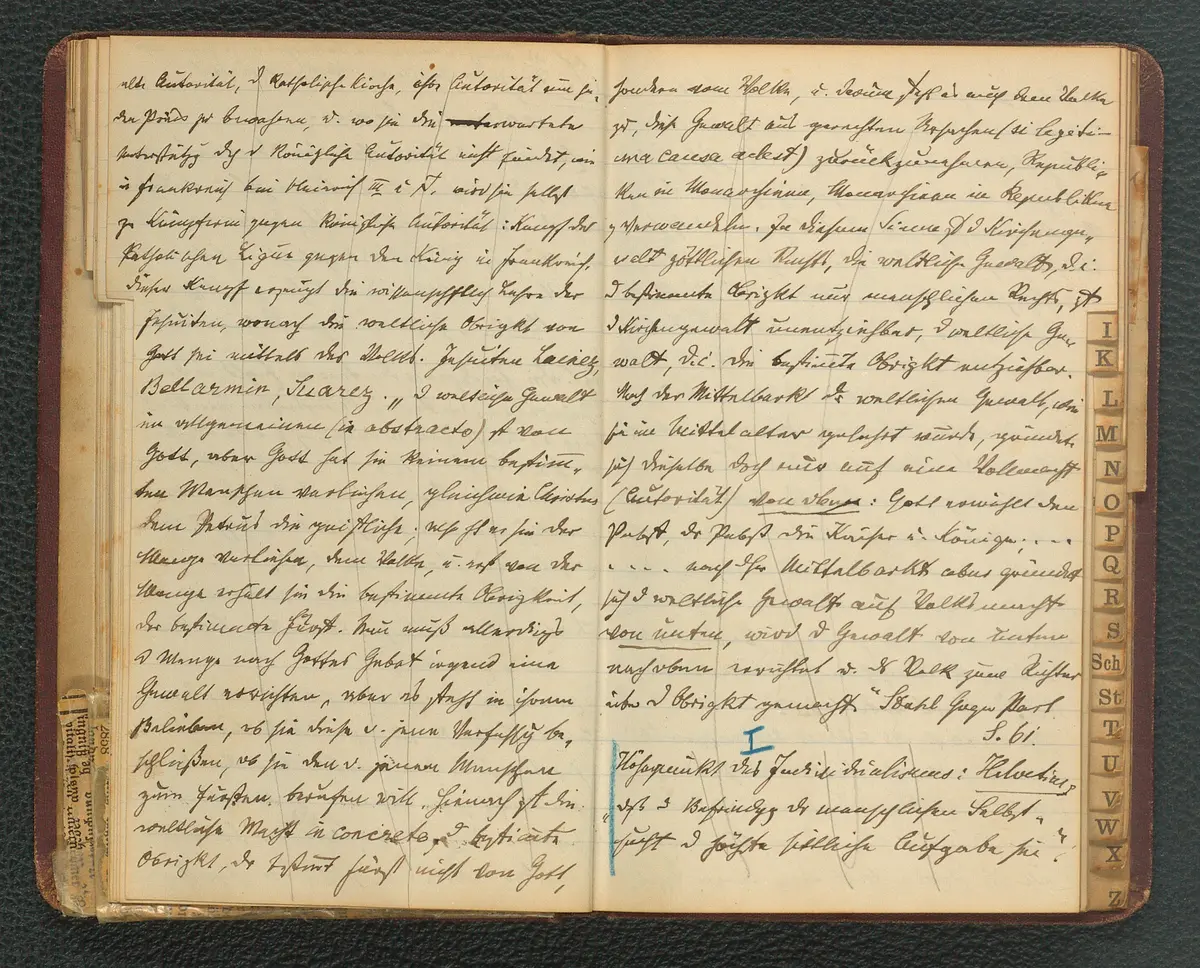 alte Autorität, d Katholische Kirche, ihre Autorität um je-
den Preis zu bewahren, u. wo sie die erwartete
Unterstützg dch d Königliche Autorität nicht findet, wie
in Frankreich bei Heinrich III u IV. wird sie selbst
zr Kämpferin gegen Königliche Autorität: Kampf der
Katholischen Ligue gegen den König in Frankreich.
Dieser Kampf erzeugt die wissenschftlich Lehre der
Jesuiten, wonach die weltliche Obrigkt von
Gott sei mittels des Volks. Jesuiten Lainez,
Bellarmin, Suarez. „d weltliche Gewalt
im allgemeinen (in abstracto) ist von
Gott, aber Gott hat sie keinem bestimm-
ten Menschen verliehen, gleichwie Christus
dem Petrus die geistliche; er sie der
Menge verliehen, dem Volke, u. erst von der
Menge erhält sie die bestimmte Obrigkeit,
der bestimmte Fürst. Nun muß allerdigs
d Menge nach Gottes Gebot irgend eine
Gewalt errichten, aber es steht in ihrem
Belieben, ob sie diese o. jene Verfassg be-
schließen, ob sie den o. jenen Menschen
zum Fürsten berufen will. Hienach ist die
weltliche Macht in concreto, d bestimmte
Obrigkt, der bestimmte Fürst nicht von Gott,
sondern vom Volke, u. darum steht es auch dem Volke
zu, diese Gewalt aus gerechten Ursachen (si legiti-
ma causa adest) zurückzunehmen, Republi-
ken in Monarchieen, Monarchieen in Republiken
z verwandeln. In diesem Sinne ist d Kirchenge-
walt göttlichen Rechts, die weltliche Gewalt, d. i.
d bestimmte Obrigkt nur menschlichen Rechts, ist
d Kirchengewalt unentziehbar, d weltliche Ge-
walt, d. i. die bestimmte Obrigkt entziehbar.
Nach der Mittelbarkt der weltlichen Gewalt, wie
sie im Mittelalter gelehrt wurde, gründet
sich dieselbe doch nur auf eine Vollmacht
(Autorität) von oben: Gott erwählt den
Pabst der Pabst die Kaiser u. Könige; ...
.... nach dser Mittelbarkt aber gründet
sich d weltliche Gewalt auf Volksmacht
von unten, wird d Gewalt von unten
nach oben errichtet u. ds Volk zum Richter
über d Obrigkt gemacht." Stahl Gegw Part
S. 61.
I
Höhepunkt des Individualismus: Helvetius,
„dß d Befriedigg der menschlichen Selbst-
sucht d höchste sittliche Aufgabe sei".
I
K
L
M
N
O
P
Q
R
S
Sch
St
T
U
V
W
X
Z